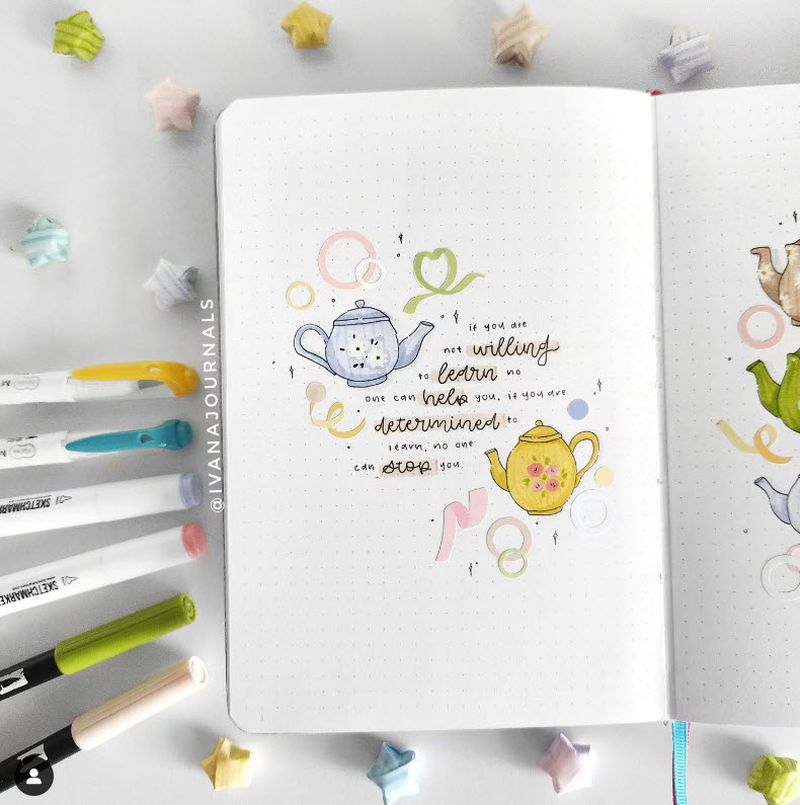 if you are
not willing
to learn no
one can help you, if you are
determined to
learn, no one
can stop you.
@IVANAJOURNALS
SKETCHMARKER
SKETCHMARKER